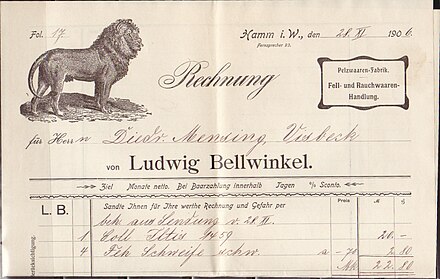 Fol. 17
Hamm i. W., den 28. XI 1906
Fernsprecher 23.
Rechnung
Pelzwaaren-Fabrik.
Fell- und Rauchwaaren-
Handlung.
für Herrn Diedr. Mensing,
von Ludwig Bellwinkel.
Ziel Monate netto. Bei Baarzahlung innerhalb Tagen % Sconto.
L. B.
Sandte Ihnen für Ihre werthe Rechnung und Gefahr per
Preis
M
S
aus Sendung v. 28. XI.
1 20.–
4 Feh Schweife a – 70 2.80
Mk 22.80